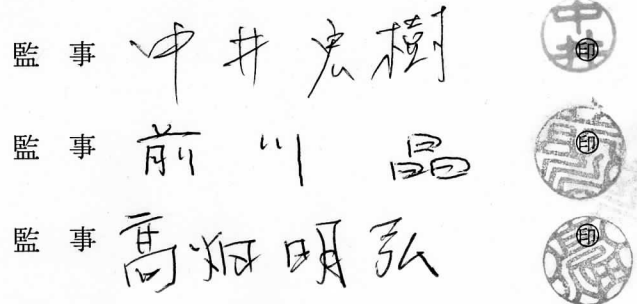 監事 中井宏樹 ㊞
監事 前川晶 ㊞
監事 高畑明弘 ㊞